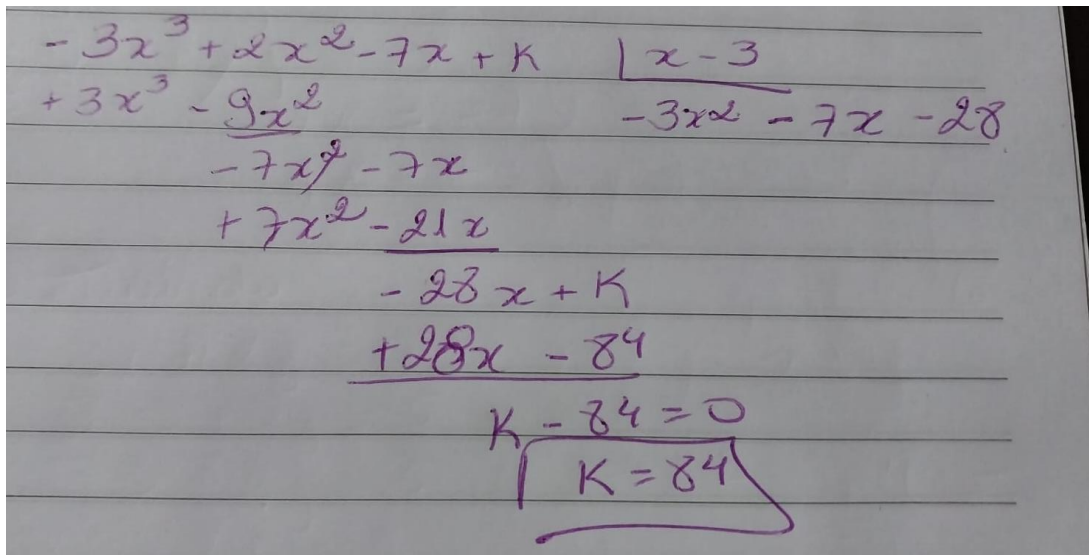 - 3x³ + 2x² - 7x + K | x - 3
+ 3x³ - 9x² - 3x² - 7x - 28
- 7x² - 7x
+ 7x² - 21x
- 28x + K
+ 28x - 84
K - 84 = 0
K = 84